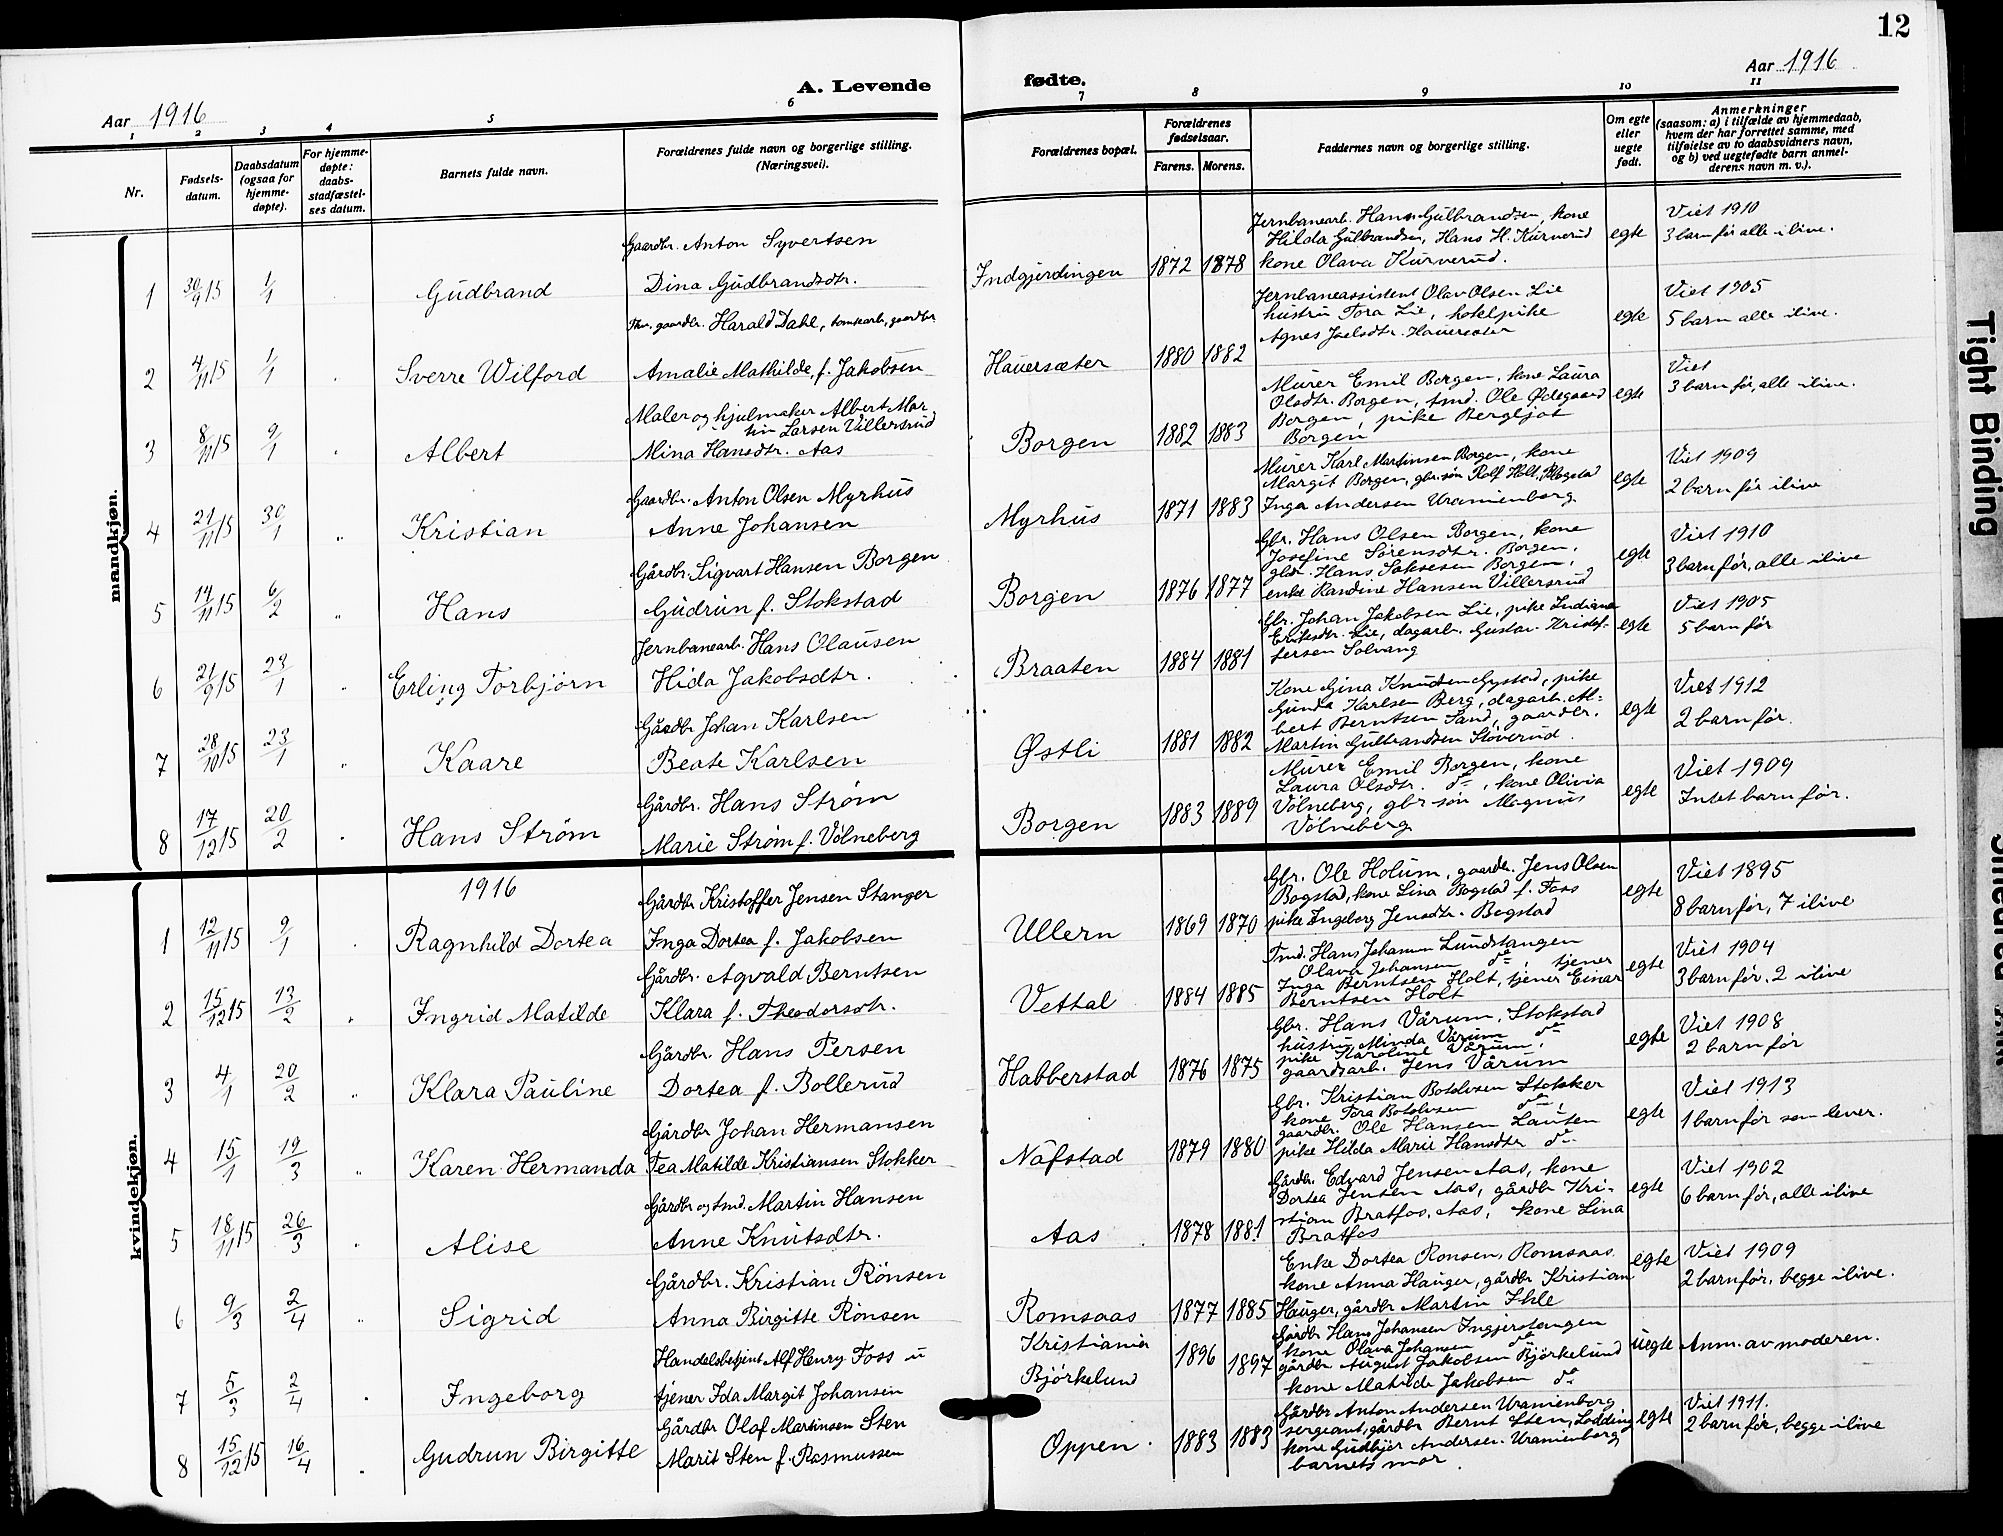 12
A. Levende
fødte.
Aar 1916
Aar 1916
1 2 3 4 5 6
7 8 9 10 11
Nr.
Fødsels-
datum.
Daabsdatum
(ogsaa for
hjemme-
døpte).
For hjemme-
døpte:
daabs-
stadfæstel-
ses datum.
Barnets fulde navn.
Forældrenes fulde navn og borgerlige stilling.
(Næringsvei).
Forældrenes bopæl.
Forældrenes
fødselsaar.
Farens. Morens.
Faddernes navn og borgerlige stilling.
Om egte
eller
uegte
født.
Anmerkninger
(saasom: a) i tilfælde av hjemmedaab,
hvem der har forrettet samme, med
tilføielse av to daabsvidners navn,
og b) ved uegtefødte barn anmel-
derens navn m. v.).
mandkjøn.
1 30/9 15 1/1 Gudbrand
Gaardbr. Anton Syvertsen
Dina Gudbrandsdtr.
Indgjerdingen 1872 1878
Jernbanearb. Hans Gulbrandsen, kone
Hilda Gulbrandsen, Hans H. Kurverud
kone Olava Kurverud.
egte
Viet 1910
3 barn før alle ilive.
2 4/11 15 1/1 Sverre Wilford
Harald Dahl, tomtearb., gaardbr
Amalie Mathilde, f. Jakobsen
Hauersæter 1880 1882
Jernbaneassistent Olav Olsen Lie
hustru Tora Lie, hotelpike
Agnes Joelsdtr. Hauersæter
egte
Viet 1905
5 barn alle ilive.
3 8/11 15 9/1 Albert
Maler og hjulmaker Albert Mar
tin Larsen Villersrud
Mina Hansdtr. Aas
Borgen 1882 1883
Murer Emil Borgen, kone Laura
Olsdtr. Borgen, smd. Ole Ødegaard
Borgen, pike Bergljot
Borgen
egte
Viet
3 barn før, alle ilive.
4 21/11 15 30/1 Kristian
Gaardbr. Anton Olsen Myrhus
Anne Johansen
Myrhus 1871 1883
Murer Karl Martinsen Borgen, kone
Margit Borgen, gbr. søn Rolf Holt, Bogstad
Inga Andersen Uranienborg
egte
Viet 1909
2 barn før ilive
5 14/11 15 6/2 Hans
Gårdbr. Sigvart Hansen Borgen
Gudrun f. Stokstad
Borgen 1876 1877
Gbr. Hans Olsen Borgen, kone
Josefine Sørensdtr. Borgen,
Hans Saksesen Borgen,
enke Randine Hansen Villersrud
egte
Viet 1910
3 barn før, alle ilive
6 21/9 15 23/1 Erling Torbjørn
Jernbanearb. Hans Olausen
Hida Jakobsdtr.
Braaten 1884 1881
Gbr. Johan Jakobsen Lie, pike Indiana
Eriksdtr. Lie, dagarb. Gustav Kristof-
fersen Solvang
egte
Viet 1905
5 barn før
7 28/10 15 23/1 Kaare
Gårdbr Johan Karlsen
Beate Karlsen
Østli 1881 1882
Kone Gina Knudsen Gystad, pike
Gunda Karlsen Berg, dagarb. Al-
bert Berntsen Sand, gaardbr.
Martin Gulbrandsen Støverud.
egte
Viet 1912
2 barn før.
8 17/12 15 20/2 Hans Strøm
Gårdbr. Hans Strøm
Marie Strøm f. Vølneberg
Borgen 1883 1889
Murer Emil Borgen, kone
Laura Olsdtr. do, kone Olivia
Vølneberg, gbr søn Magnus
Vølneberg
egte
Viet 1909
Intet barn før.
kvindekjøn.
1916
1 12/11 15 9/1 Ragnhild Dortea
Gårdbr Kristoffer Jensen Stanger
Inga Dortea f. Jakobsen
Ullern 1869 1870
Gbr. Ole Holum, gaardbr. Jens Olsen
Bogstad, kone Lina Bogstad f. Foss
pike Ingeborg Jensdtr. Bogstad
egte
Viet 1895
8 barn før, 7 ilive
2 15/12 15 13/2 Ingrid Matilde
Gårdbr. Agvald Berntsen
Klara f. Theodorsdtr.
Vettal 1884 1885
Tmd. Hans Johansen Lundstangen
Olava Johansen do, tjener
Inga Berntsen Holt, tjener Einar
Berntsen Holt
egte
Viet 1904
3 barn før, 2 ilive
3 4/1 20/2 Klara Pauline
Gårdbr. Hans Persen
Dortea f. Bollerud
Habberstad 1876 1875
Gbr. Hans Vårum, Stokstad
hustru Minda Vårum do
pike Karoline Vårum,
gaardsarb. Jens Vårum
egte
Viet 1908
2 barn før
4 15/1 19/3 Karen Hermanda
Gårdbr Johan Hermansen
Tea Matilde Kristiansen Stokker
Nafstad 1879 1880
Gbr. Kristian Botolvsen Stokker
kone Tora Botolvsen do,
gaardbr. Ole Hansen Lauten
pike Hilda Marie Hansdtr do
egte
Viet 1913
1 barn før som lever.
5 18/11 15 26/3 Alise
Gårdbr og smd. Martin Hansen
Anne Knutsdtr.
Aas 1878 1881
Gårdbr. Edvard Jensen Aas, kone
Dortea Jensen Aas, gårdbr Kri-
stian Bratfos, Aas, kone Lina
Bratfos
egte
Viet 1902
6 barn før, alle ilive
6 9/3 2/4 Sigrid
Gårdbr. Kristian Rønsen
Anna Birgitte Rønsen
Romsaas 1877 1885
Enke Dortea Rønsen, Romsaas
kone Anna Hauger, gårdbr Kristian
Hauger, gårdbr Martin Ihle
egte
Viet 1909
2 barn før, begge ilive.
7 5/3 2/4 Ingeborg
Handelsbetjent Alf Henry Foss u
tjener Ida Margit Johansen
Kristiania
Bjørkelund
1896 1897
Gårdbr Hans Johansen Ingjerstangen
kone Olava Johansen do
gårdbr August Jakobsen Bjørkelund
kone Matilde Jakobsen do
uegte
Anm. av moderen.
8 15/12 15 16/4 Gudrun Birgitte
Gårdbr Olaf Martinsen Sten
Marit Sten f. Rasmussen
Oppen 1883 1883
Gårdbr Anton Andersen Uranienborg
sergeant, gårdbr Bernt Sten, Lodding
kone Gudbjør Andersen Uranienborg
barnets mor.
egte
Viet 1911.
2 barn før, begge ilive
Tight Binding